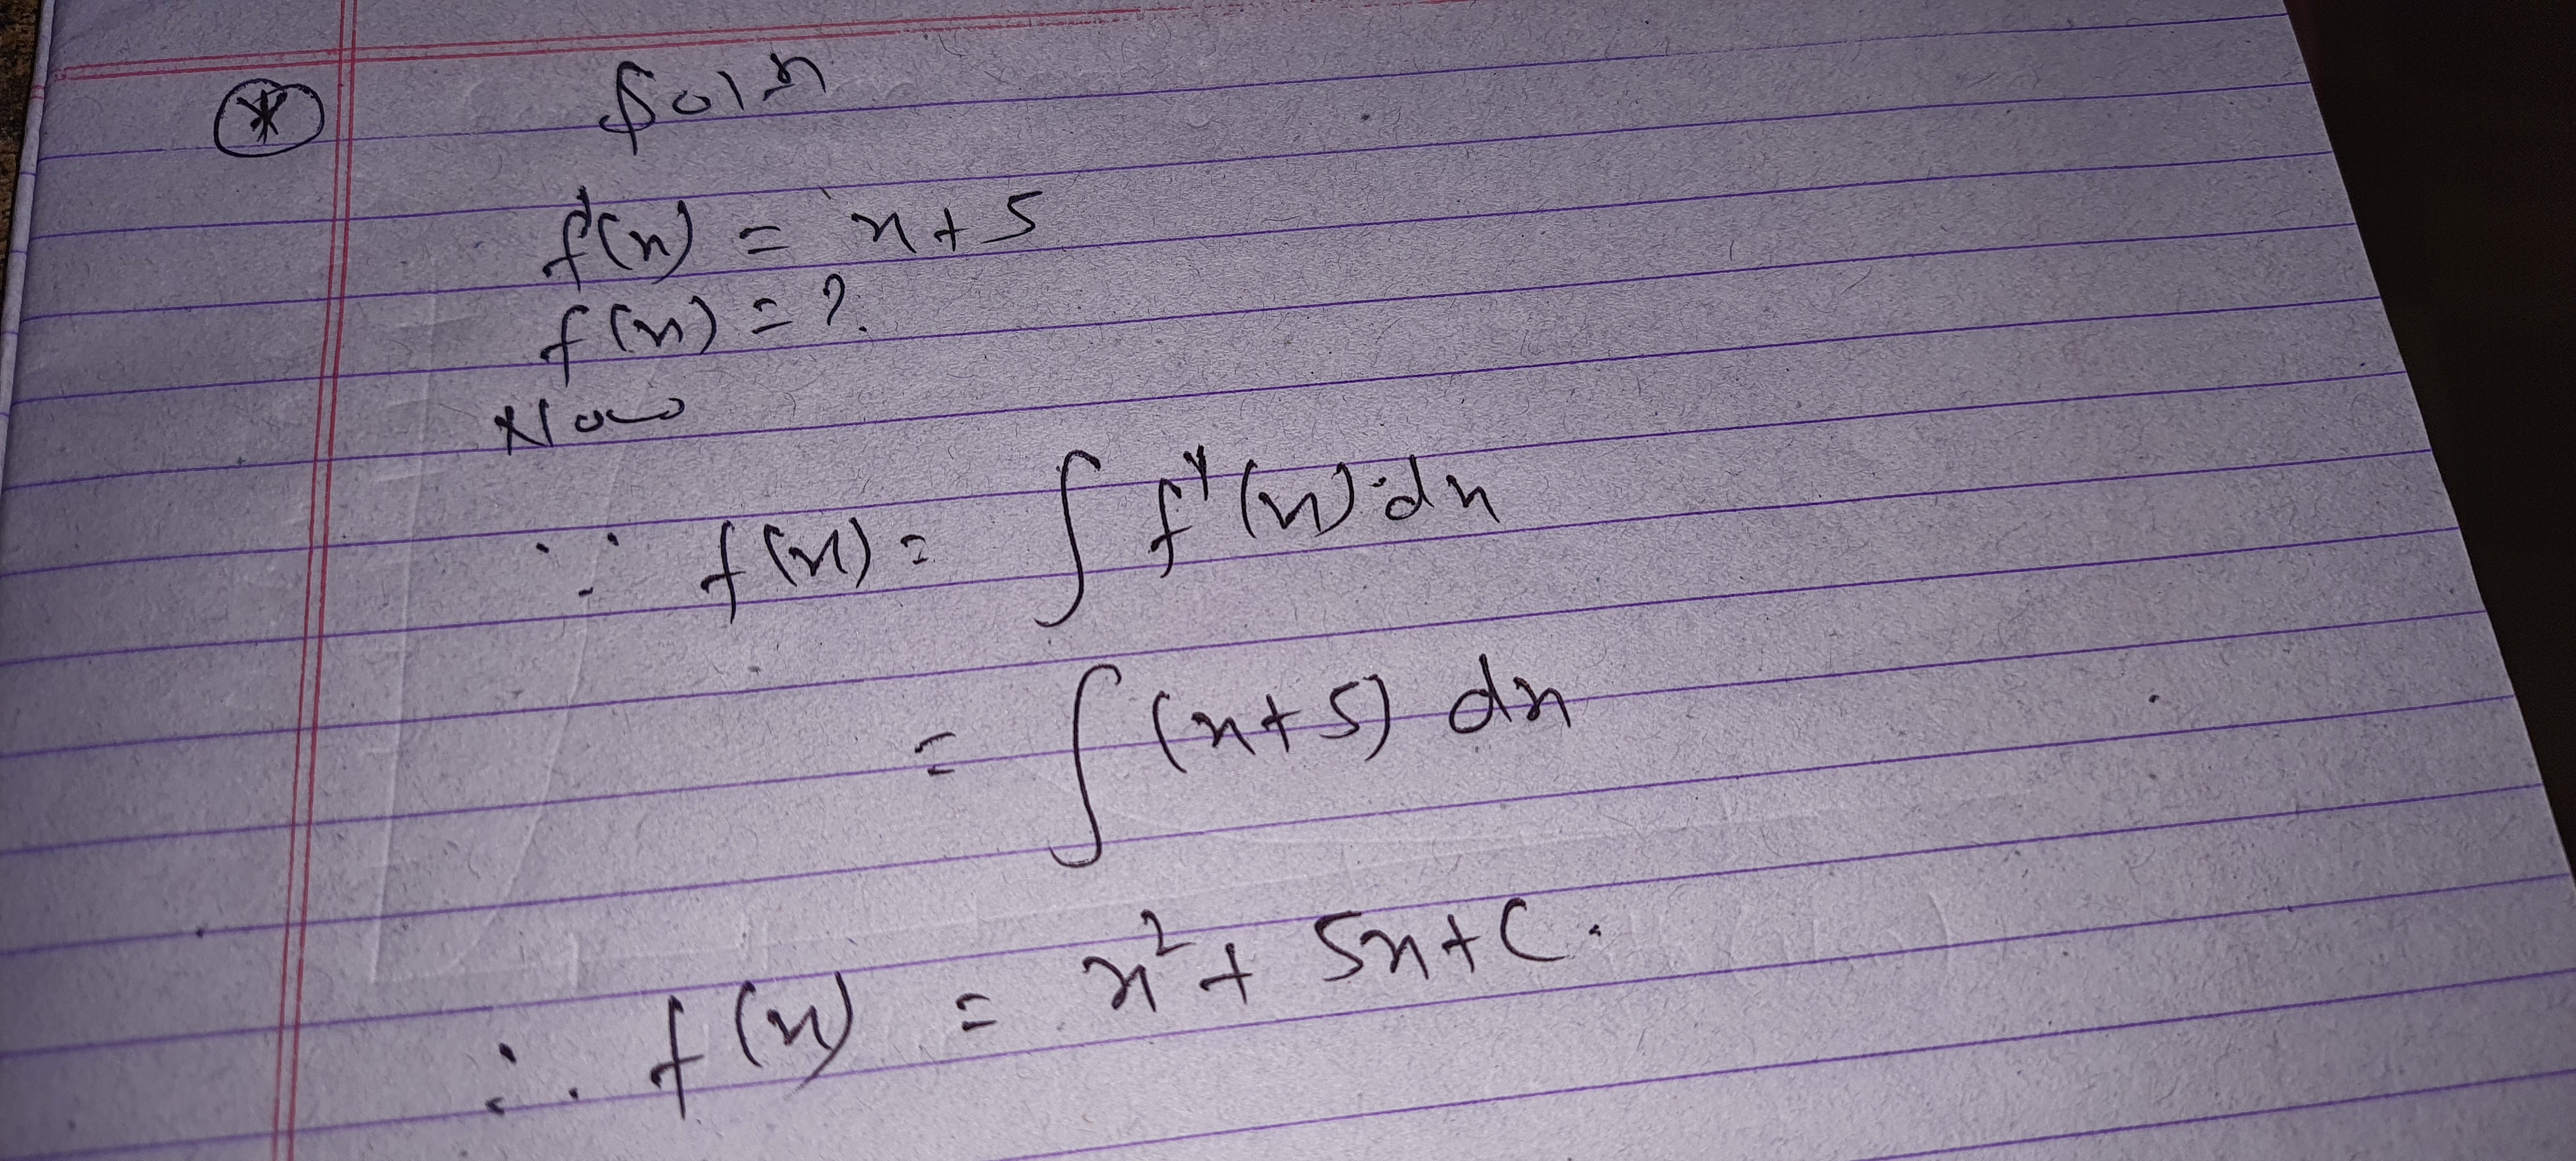 * Soln
f'(x) = x+5
f(x) = ?
Now
∵ f(x) = ∫ f'(x).dx
= ∫ (x+5) dx
∴ f(x) = x² + 5x + C.